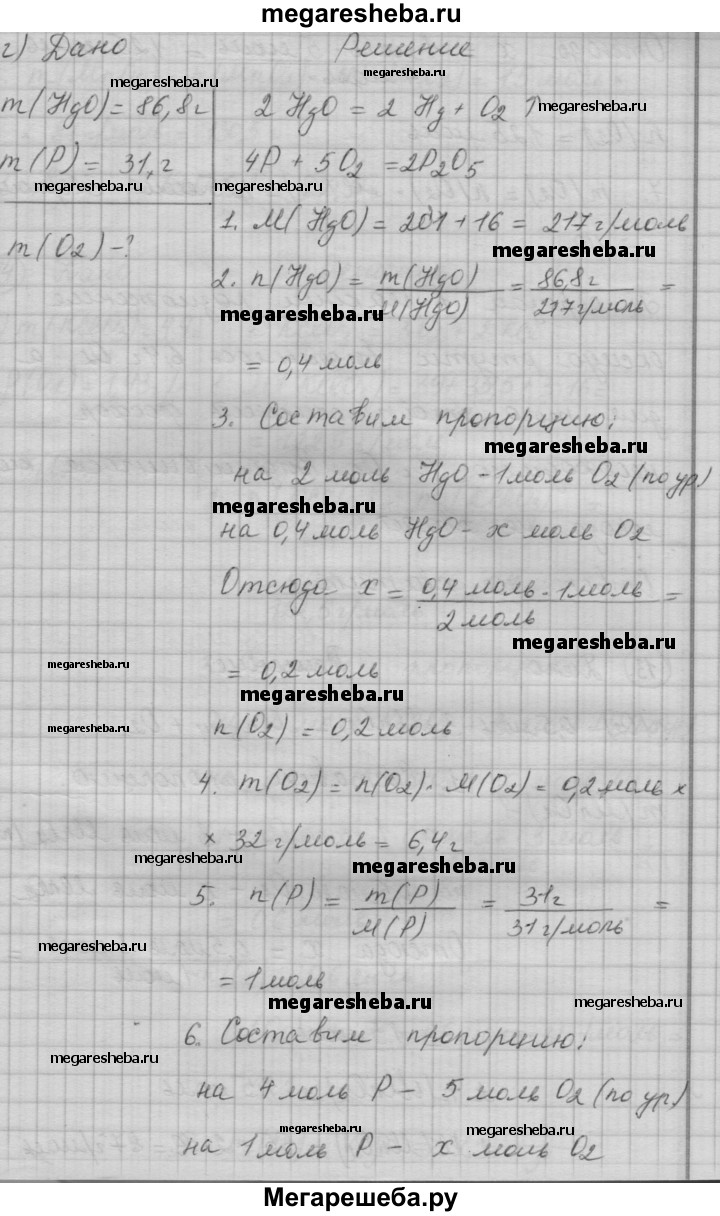 megaresheba.ru
г) Дано Решение
megaresheba.ru megaresheba.ru
m(HgO) = 86,8г 2 HgO = 2 Hg + O2 ↑ megaresheba.ru
m(P) = 31,г 4P + 5O2 = 2P2O5
megaresheba.ru megaresheba.ru
m(O2) -? 1. M(HgO) = 201 + 16 = 217 г/моль
megaresheba.ru
2. n(HgO) = m(HgO) / M(HgO) = 86,8г / 217г/моль =
megaresheba.ru
= 0,4 моль
3. Составим пропорцию:
megaresheba.ru
на 2 моль HgO - 1 моль O2 (по ур)
megaresheba.ru
на 0,4 моль HgO - x моль O2
Отсюда x = 0,4 моль · 1моль / 2 моль =
megaresheba.ru
megaresheba.ru = 0,2 моль
megaresheba.ru
megaresheba.ru n(O2) = 0,2 моль
4. m(O2) = n(O2) · M(O2) = 0,2 моль ×
× 32 г/моль = 6,4 г
megaresheba.ru megaresheba.ru
5. n(P) = m(P) / M(P) = 31г / 31 г/моль =
megaresheba.ru
= 1 моль
megaresheba.ru megaresheba.ru
6. Составим пропорцию:
megaresheba.ru
на 4 моль P - 5 моль O2 (по ур)
megaresheba.ru megaresheba.ru
на 1 моль P - x моль O2
Мегарешеба.ру